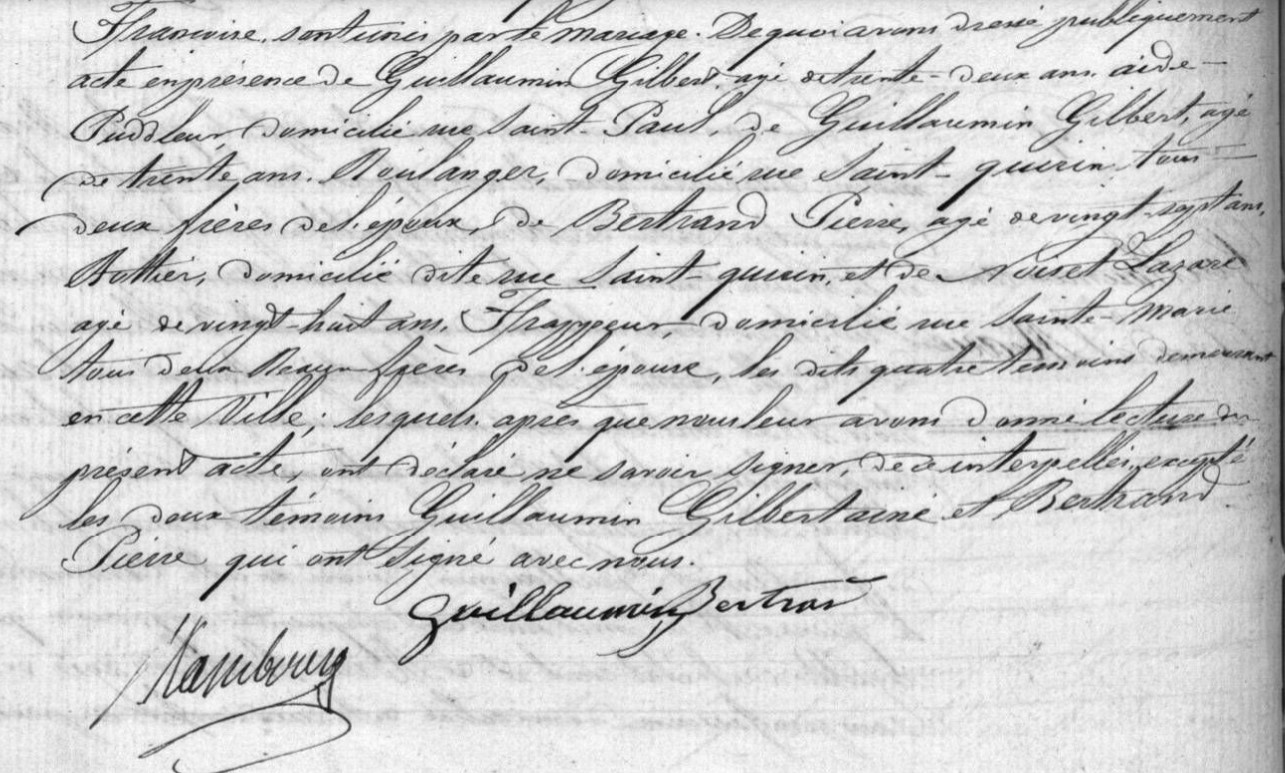 Francoise, sont unis par le mariage. De quoi avons dressé publiquement
acte en présence de Guillaumin Gilbert, agé de trente-deux ans, aide-
Puddleur, domicilié rue Saint-Paul, de Guillaumin Gilbert, agé
de trente ans, Boulanger, domicilié rue Saint-quirin, tous
deux frères de l'époux, de Bertrand Pierre, agé de vingt-sept ans,
Bottier, domicilié dite rue Saint-quirin, et de Noiset Lazare
agé de vingt-huit ans, Frappeur, domicilié rue Sainte-Marie
tous deux Beaux-frères de l'épouse, les dits quatre témoins demeurant
en cette Ville; lesquels, après que nous leur avons donné lecture du
présent acte, ont déclaré ne savoir signer, de ce interpellés, excepté
les deux témoins Guillaumin Gilbert ainé et Bertrand
Pierre qui ont signé avec nous.
Guillaumin Bertran